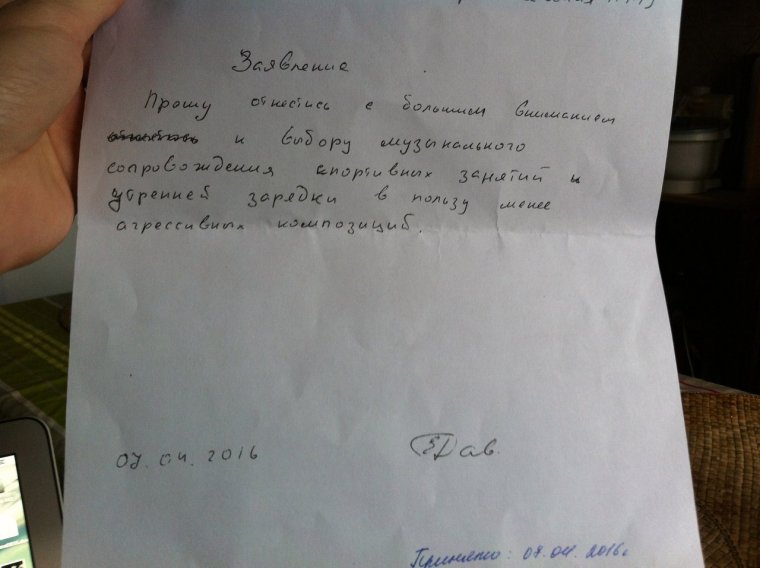 Заявление
Прошу отнестись с большим вниманием
к выбору музыкального
сопровождения спортивных занятий и
утренней зарядки в пользу менее
агрессивных композиций.
07.04.2016
Дав.
Принято: 07.04.2016г